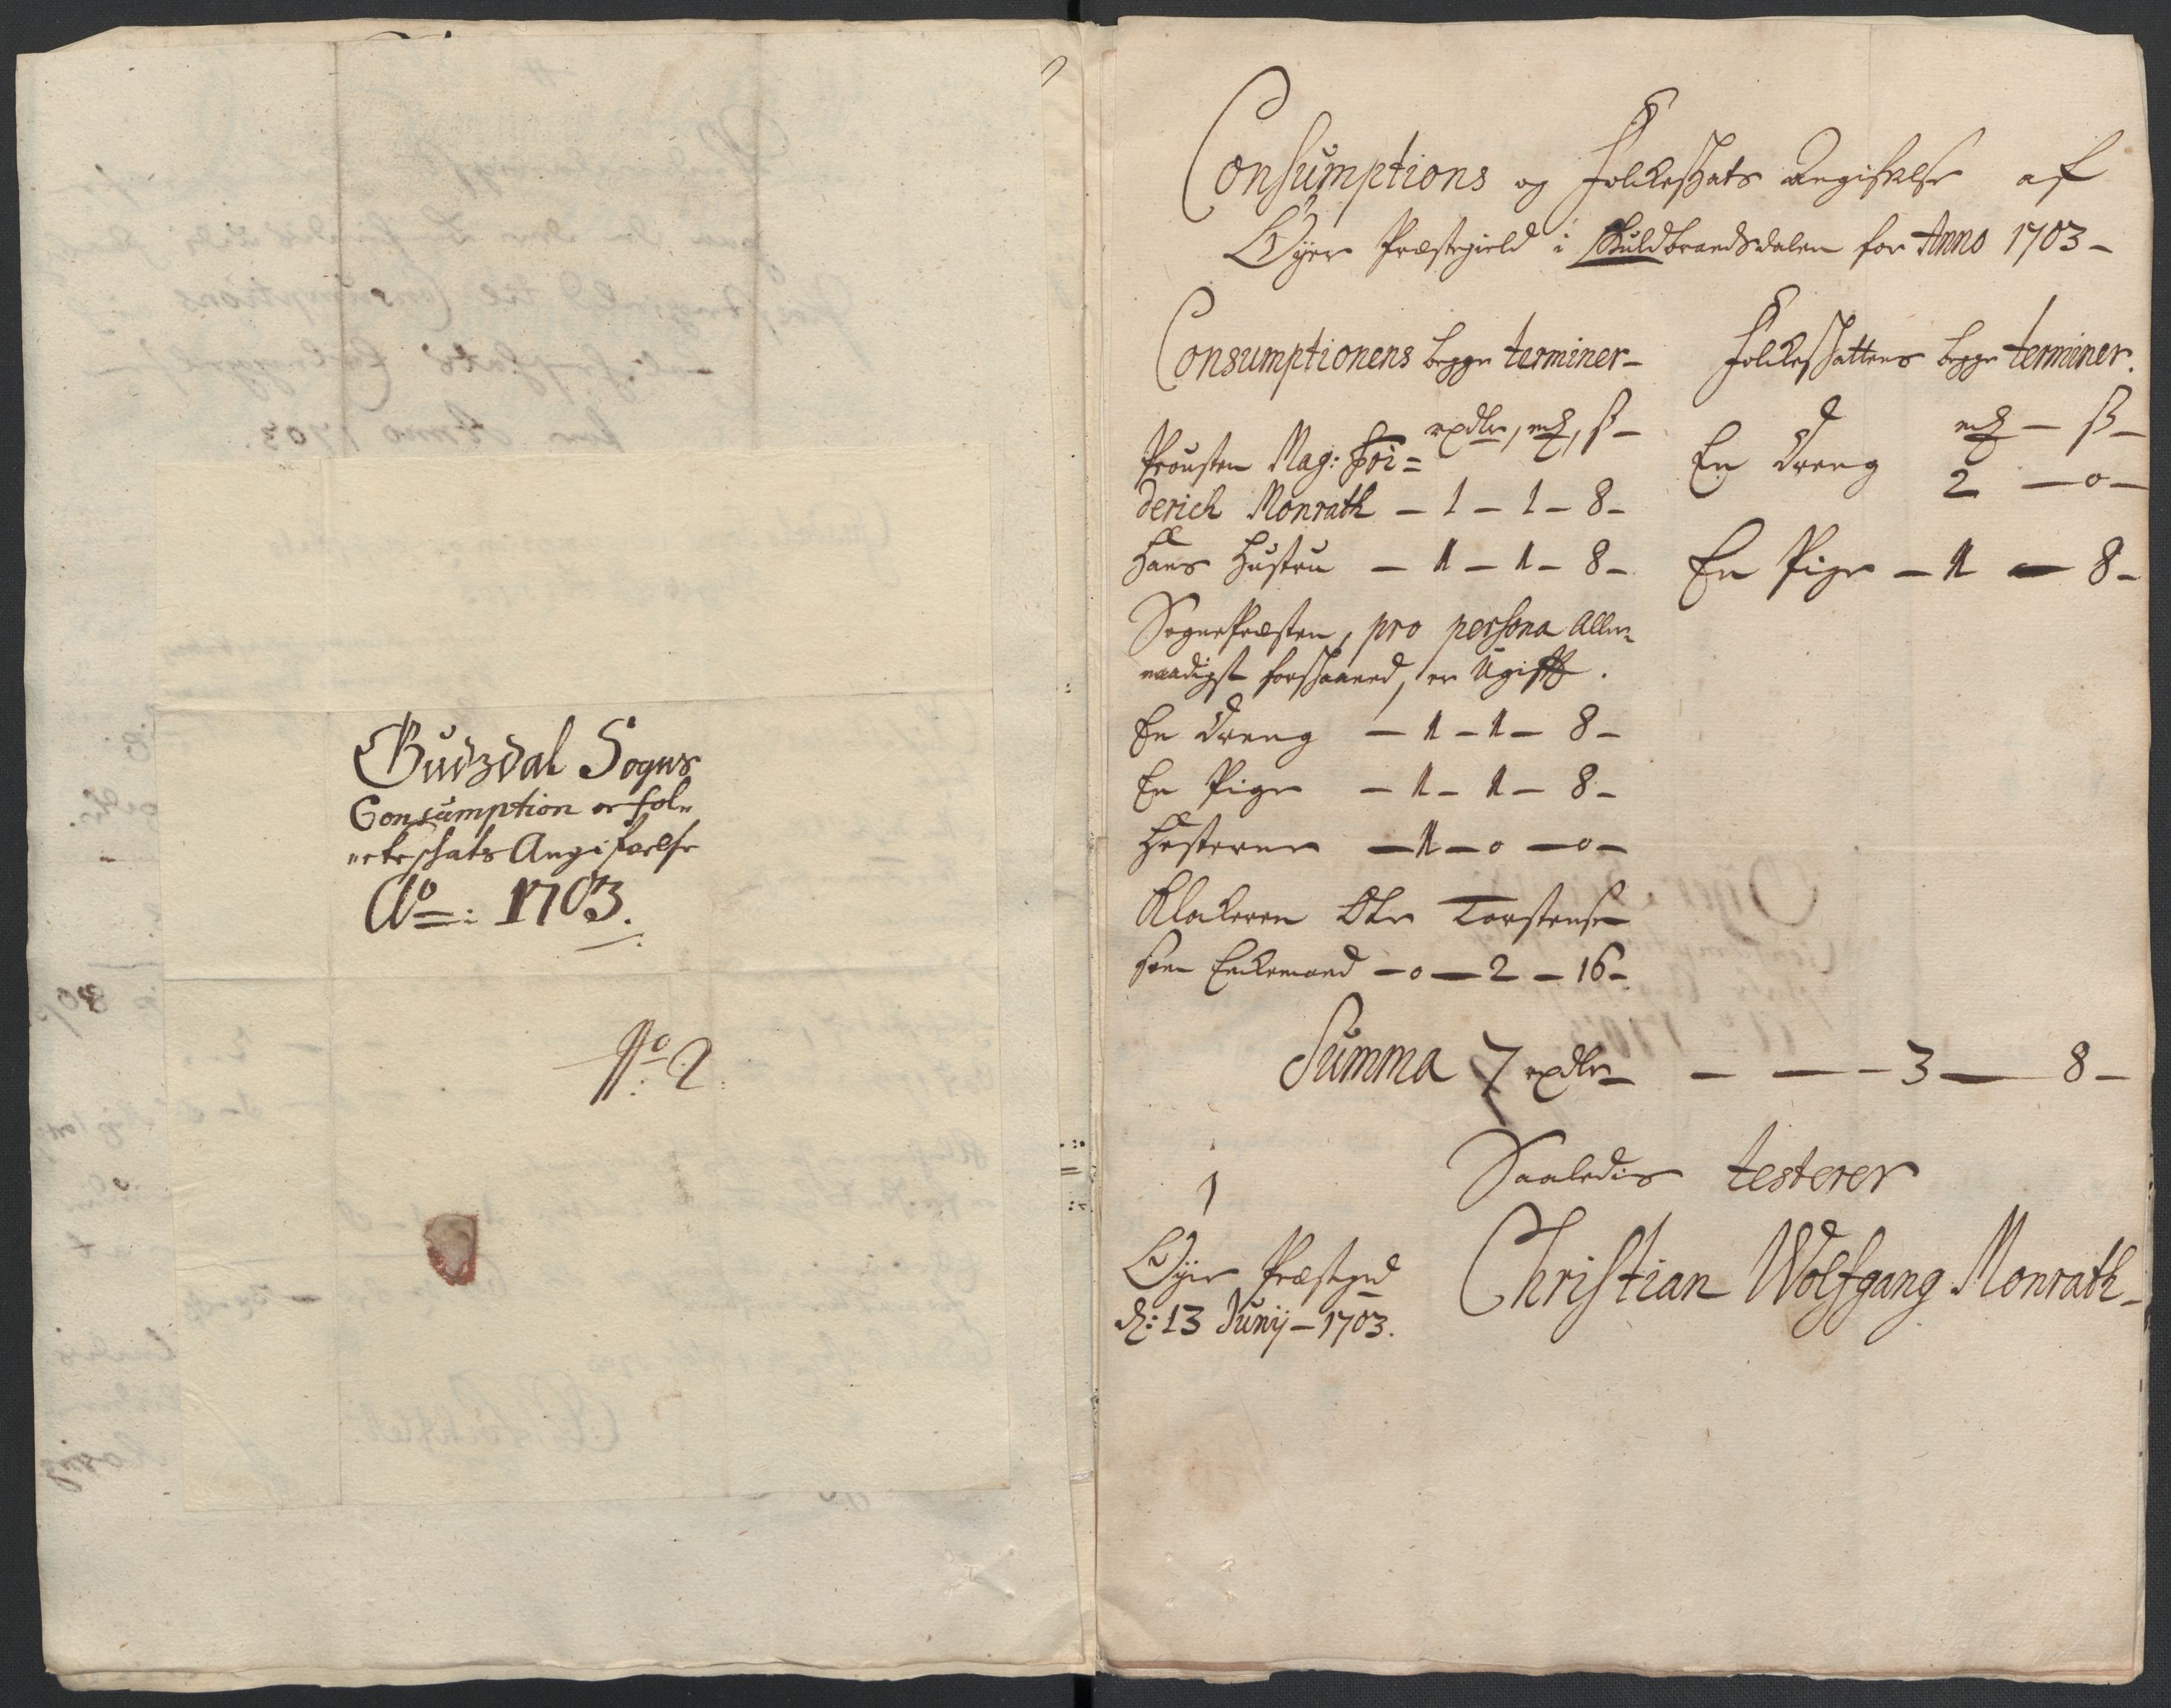 Gudzdal Sogns
Consumption oc fol„
„ckeschats Angifvelse
Ao: 1703.
No: 2.
Consumptions og Folckeskats Angifvelse af
Øyer Præstegield i Guldbrandsdalen for Anno 1703 –
Consumptionens begge terminer –
rxdlr, mk, ß –
Prousten Mag: Fri=
derich Monrath – 1 – 1 – 8 –
Hans Hustru – 1 – 1 – 8 –
SognePræsten, pro persona Aller„
naadigst forskaaned, er Ugift.
En Dreng – 1 – 1 – 8 –
En Pige – 1 – 1 – 8 –
Hesterne – 1 – 0 – 0 –
Klokeren Ole Torstens
søn Enkemand – 0 – 2 – 16 –
Folckeskattens begge terminer.
mk – ß –
En Dreng 2 – 0 –
En Pige – 1 – 8 –
Summa 7 rxdlr – – – 3 – 8 –
Saaledis testerer
Christian Wolfgang Monrath –
Øyer Præstegrd
d: 13 Junij – 1703.